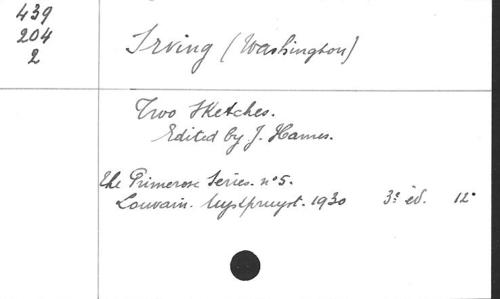 439
204
2
Irving (Washington)
Two Sketches.
Edited by J. Hames.
The Primerose Series. n° 5.
Louvain. Uystpruyst. 1930 3e éd. 12°